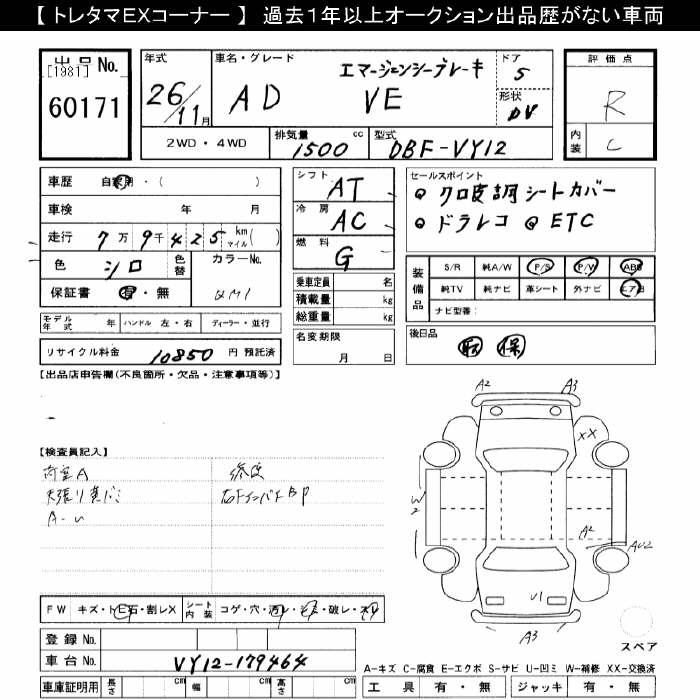 【 トレタマEXコーナー 】 過去1年以上オークション出品歴がない車両
出品 No.
[1981]
60171
年式
26/11月
車名・グレード
エマージェンシーブレーキ
AD VE
ドア
5
形状
DV
評価点
R
内装
C
2WD・4WD
排気量 1500 cc
型式 DBF-VY12
車歴 自家用・( )
車検 年 月
走行 7万9千425 km マイル ( )
色 シロ
色替
カラーNo.
QM1
保証書 有・無
シフト AT
冷房 AC
燃料 G
乗車定員 名
積載量 kg
総重量 kg
セールスポイント
クロ皮調シートカバー
ドラレコ ETC
装備品
S/R 純A/W P/S P/W ABS
純TV 純ナビ 革シート 外ナビ エアB
ナビ型番:
モデル年式 年 ハンドル 左・右 ディーラー・並行
リサイクル料金 10850 円 預託済
名変期限
月 日
後日品
取 保
【出品店申告欄(不良箇所・欠品・注意事項等)】
【検査員記入】
荷室A
天張り
A-U
A2
A3
XX
W2
A2
AU2
U1
A3
FW キズ・トビ石・割レX
シート内装 コゲ・穴・汚レ・シミ・破レ・スリ
登録 No.
車台 No. VY12-179464
車庫証明用 長さ cm 幅 cm 高さ cm
スペア
A-キズ C-腐食 E-エクボ S-サビ U-凹ミ W-補修 XX-交換済
工具 有・無 ジャッキ 有・無